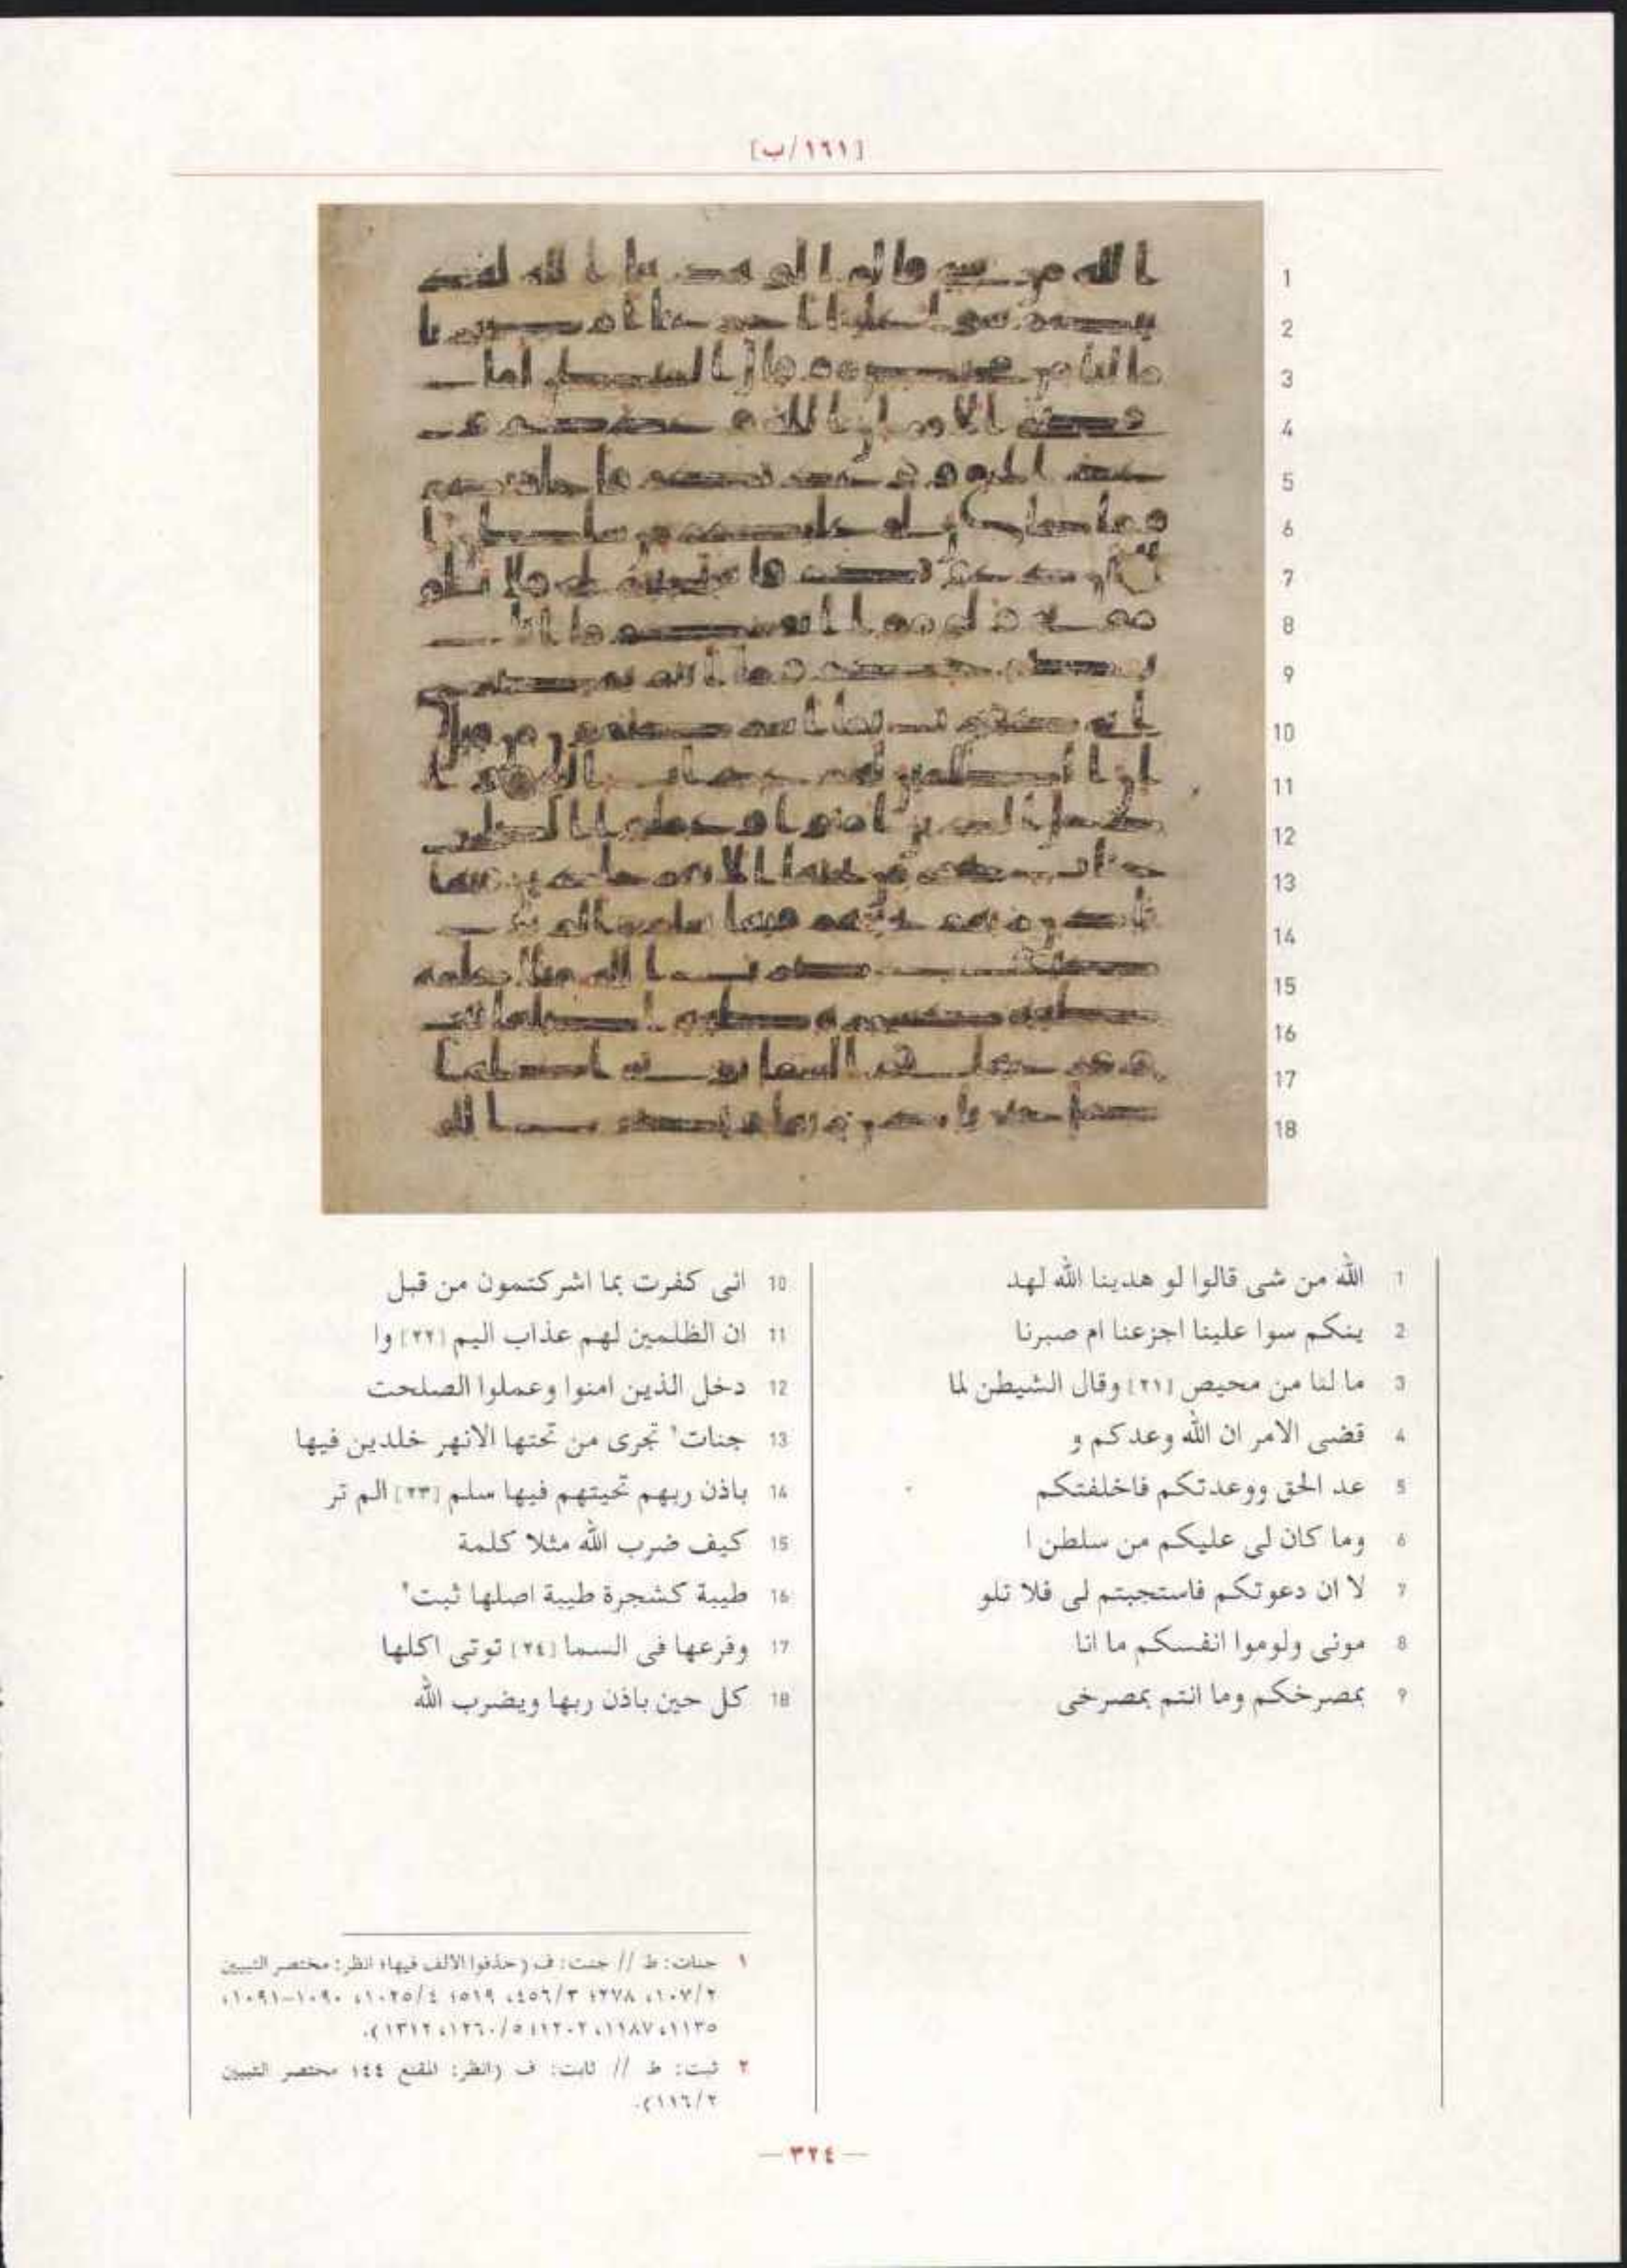 [١٦١/ب]
1 الله من شى قالوا لو هدينا الله لهد
2 ينكم سوا علينا اجزعنا ام صبرنا
3 ما لنا من محيص [٢١] وقال الشيطن لما
4 قضى الامر ان الله وعدكم و
5 عد الحق ووعدتكم فاخلفتكم
6 وما كان لى عليكم من سلطن ا
7 لا ان دعوتكم فاستجبتم لى فلا تلو
8 مونى ولوموا انفسكم ما انا
9 بمصرخكم وما انتم بمصرخى
10 انى كفرت بما اشركتمون من قبل
11 ان الظلمين لهم عذاب اليم [٢٢] وا
12 دخل الذين امنوا وعملوا الصلحت
13 جنات١ تجرى من تحتها الانهر خلدين فيها
14 باذن ربهم تحيتهم فيها سلم [٢٣] الم تر
15 كيف ضرب الله مثلا كلمة
16 طيبة كشجرة طيبة اصلها ثبت٢
17 وفرعها فى السما [٢٤] توتى اكلها
18 كل حين باذن ربها ويضرب الله
١ جنات: ط // جنت: ف (حذفوا الالف فيها؛ انظر: مختصر التبيين
٢/١٠٧، ٢٧٨؛ ٣/٤٥٦، ٥١٩؛ ٤/١٠٢٥، ١٠٩٠-١٠٩١،
١١٣٥، ١١٨٧، ١٢٠٢؛ ٥/١٢٦٠، ١٣١٢).
٢ ثبت: ط // ثابت: ف (انظر: المقنع ٤٤؛ مختصر التبيين
٢/١١٦).
— ٣٢٤ —